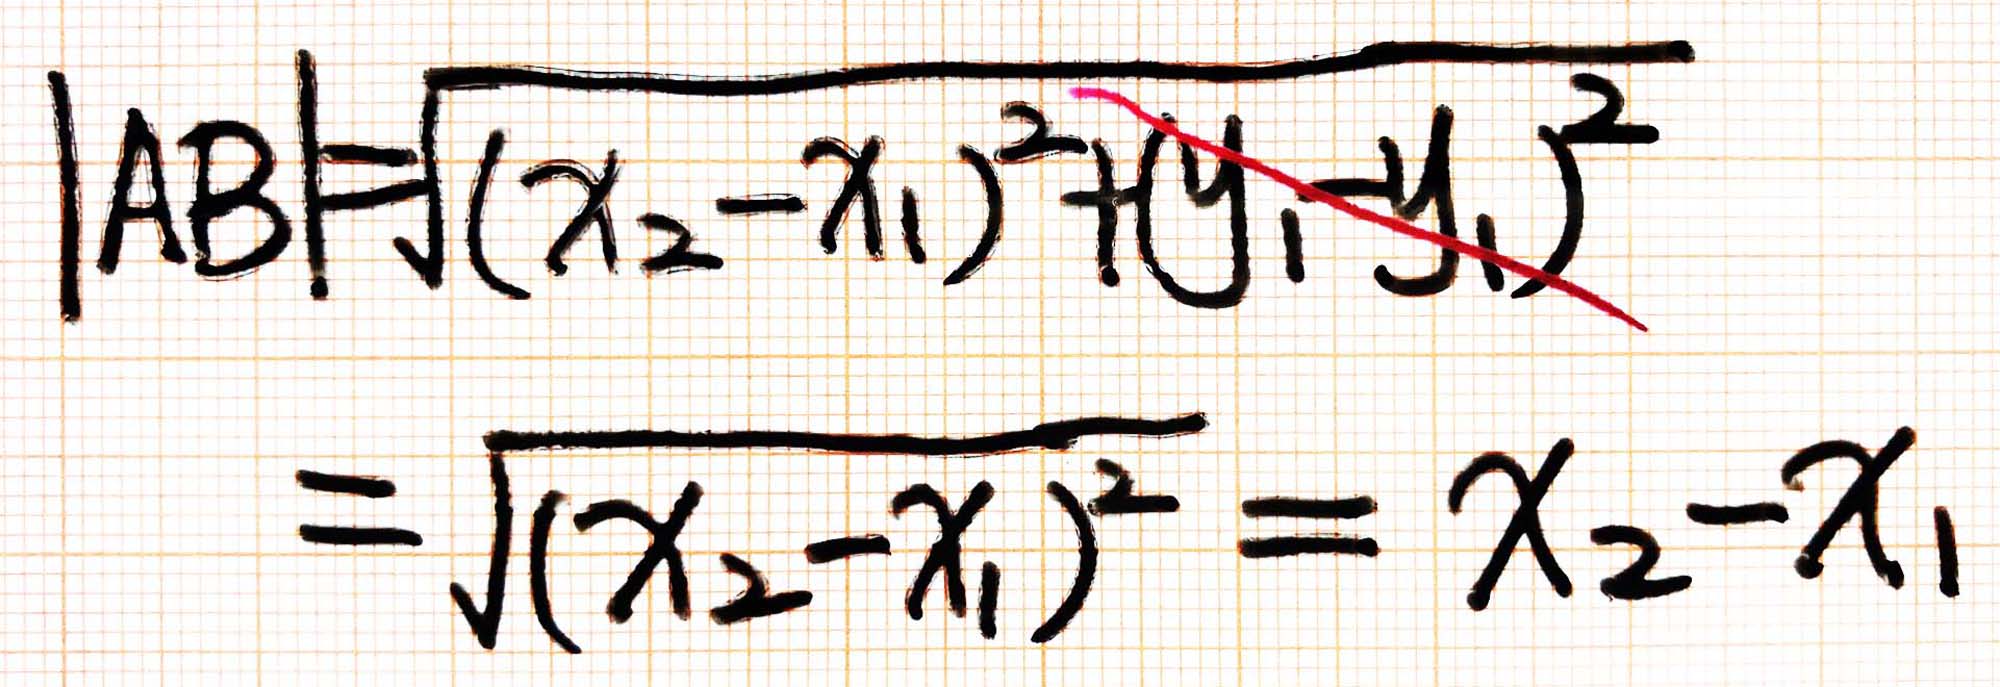 |AB|=√(x₂-x₁)²+(y₁-y₁)²
=√(x₂-x₁)²=x₂-x₁